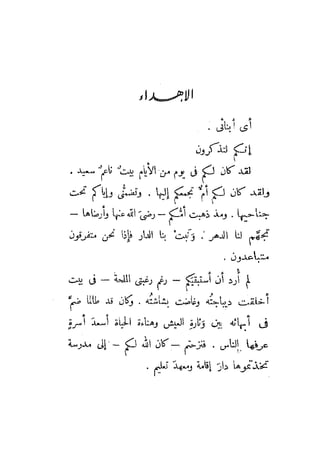 الإهداء
أى أبنائى .
إنكم لتذكرون
لقد كان لكم فى يوم من الأيام بيتٌ ناعمٌ سعيد .
ولقد كان لكم أمٌ تجمعكم إليها . وتضمُّنى وإياكم تحت
جناحيها . ومذ ذهبت أمُّكم – رضىَ اللّٰه عنها وأرضاها –
تجهَّم لنا الدهر . وَنبَتْ بنا الدار فإذا نحن متفرقون
متباعدون .
لم أُرد أن أستبقيَكم – رغم رغبتى الملحة – فى بيت
أخلقت ديباجتُه وغاضت بشاشتُه . وكان قد طالما ضمَّ
فى أبهائه بين وَثارةِ العيش وهناءة الحياة أسعدَ أسرةٍ
عرفها الناس . فنزحتم – كان اللّٰه لكم – إلى مدرسة
تتخذتموها دارَ إقامة ومعهدَ تعليم .